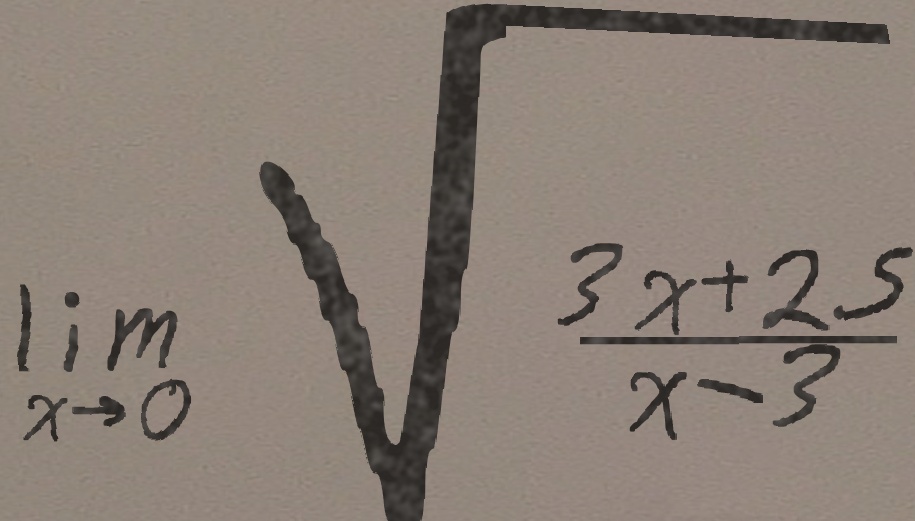 lim x→0 √((3x+25)/(x-3))